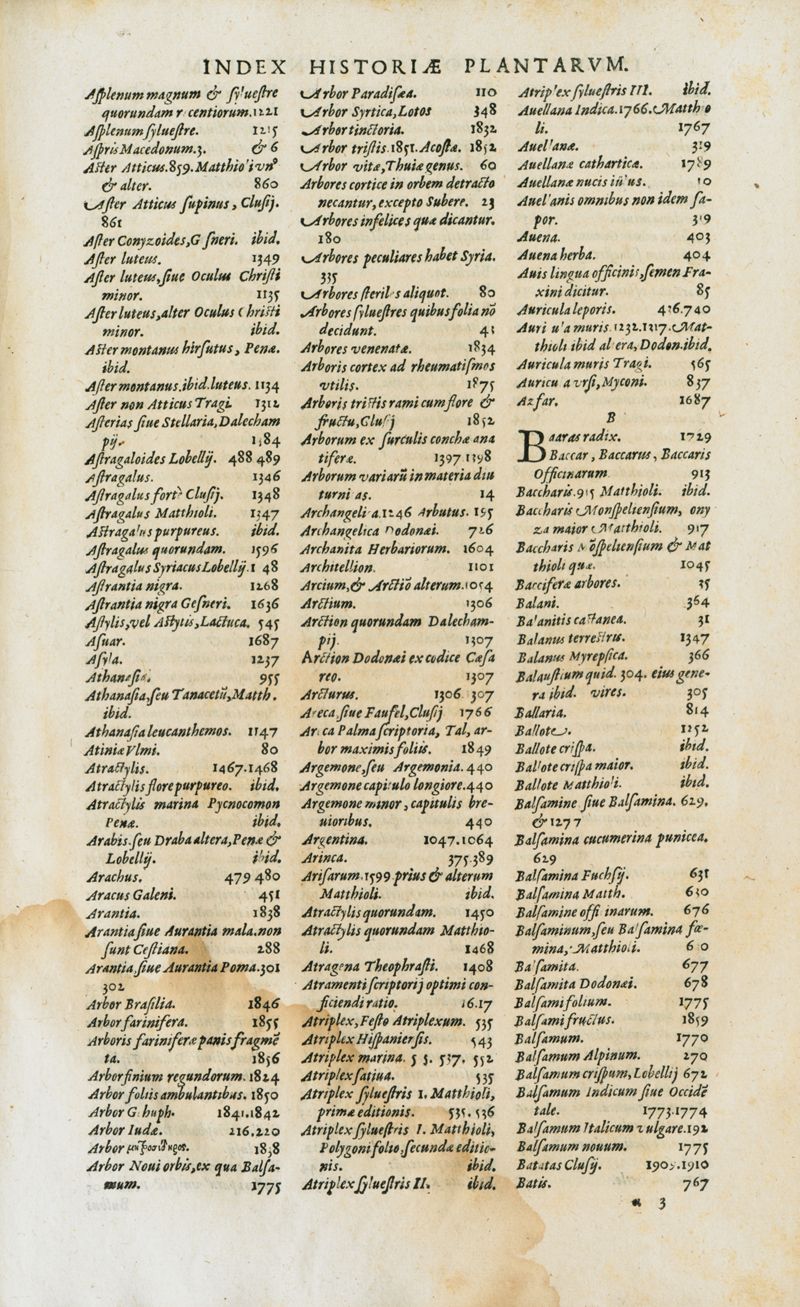 INDEX HISTORIÆ PLANTARVM.
Asplenum magnum & syluestre
quorundam recentiorum.1221
Asplenum syluestre. 1215
Aspris Macedonum.3. & 6
Aster Atticus.859.Matthio
& alter. 860
Aster Atticus supinus, Clusij.
861
Aster Conyzoides, Gesneri. ibid.
Aster luteus. 1349
Aster luteus, siue Oculus Christi
minor. 1135
Aster luteus, alter Oculus Christi
minor. ibid.
Aster montanus hirsutus, Penæ.
ibid.
Aster montanus.ibid.luteus. 1134
Aster non Atticus Tragi. 1312
Asterias siue Stellaria, Dalecham
pij. 1184
Astragaloides Lobellij. 488 489
Astragalus. 1346
Astragalus forte Clusij. 1348
Astragalus Matthioli. 1347
Astragalus purpureus. ibid.
Astragalus quorundam. 1596
Astragalus Syriacus Lobellij.
Astrantia nigra. 1268
Astrantia nigra Gesneri. 1636
Astylis, vel Astytis, Lactuca. 545
Asuar. 1687
Asyla. 1237
Athanasia. 955
Athanasia, seu Tanacetũ, Matth.
ibid.
Athanasia leucanthemos. 1147
Atinia Vlmi. 80
Atractylis. 1467.1468
Atractylis flore purpureo. ibid.
Atractylis marina Pycnocomon
Penæ. ibid.
Arabis. seu Draba altera, Penæ &
Lobellij. ibid.
Arachus. 479 480
Aracus Galeni. 451
Arantia. 1838
Arantia siue Aurantia mala. non
sunt Cestiana. 288
Arantia siue Aurantia Poma.301
302
Arbor Brasilia. 1846
Arbor farinifera. 1855
Arboris fariniferæ panis fragmẽ
ta. 1856
Arbor finium regundorum. 1824
Arbor foliis ambulantibus. 1850
Arbor G. huph. 1841.1842
Arbor Iudæ. 216.220
Arbor 1838
Arbor Noui orbis, ex qua Balsa-
mum. 1775
Arbor Paradisæa. 110
Arbor Syrtica, Lotos 348
Arbor tinctoria. 1832
Arbor tristis.1851.Acostæ. 1852
Arbor vitæ, Thuiæ genus. 60
Arbores cortice in orbem detracto
necantur, excepto Subere. 23
Arbores infelices quæ dicantur.
180
Arbores peculiares habet Syria.
335
Arbores steriles aliquot. 80
Arbores syluestres quibus folia nõ
decidunt. 41
Arbores venenatæ. 1834
Arboris cortex ad rheumatismos
vtilis. 1875
Arboris tristis rami cum flore &
fructu, Clusij 1852
Arborum ex surculis conchæ ana
tiferæ. 1397.1398
Arborum variarũ in materia diu
turni as. 14
Archangelica.1246 Arbutus. 195
Archangelica Dodonæi. 726
Archanita Herbariorum. 1604
Architellion. 1101
Arcium, & Arctiõ alterum.1054
Arctium. 1306
Arction quorundam Dalecham-
pij. 1307
Arction Dodonæi ex codice Cæsa
reo. 1307
Arcturus. 1306. 307
Areca siue Faufel, Clusij 1766
Areca Palma scriptoria, Tal, ar-
bor maximis foliis. 1849
Argemone, seu Argemonia. 440
Argemone capitulo longiore.440
Argemone minor, capitulis bre-
uioribus. 440
Argentina. 1047.1064
Arinca. 375.389
Arisarum.1599.prius & alterum
Matthioli. ibid.
Atractylis quorundam. 1450
Atractylis quorundam Matthio-
li. 1468
Atragena Theophrasti. 1408
Atramenti scriptorij optimi con-
ficiendi ratio. 16.17
Atriplex, Festo Atriplexum. 535
Atriplex Hispaniensis. 543
Atriplex marina. 537. 552
Atriplex satiua. 535
Atriplex syluestris 1. Matthioli,
primæ editionis. 535. 536
Atriplex syluestris I. Matthioli,
Polygoni folio, secundæ editio-
nis. ibid.
Atriplex syluestris II. ibid.
Atriplex syluestris III. ibid.
Auellana Indica.1766.Matthio
li. 1767
Auellanæ. 319
Auellanæ cathartica. 1789
Auellanæ nucis
Auellanis omnibus non idem sa-
por. 319
Auena. 403
Auena herba. 404
Auis lingua officinis, semen Fra-
xini dicitur. 85
Auricula leporis. 436.740
Auricula muris.1232.1317.Mat-
thioli ibid altera, Dodon.ibid.
Auricula muris Tragi. 565
Auricula vrsi, Myconi. 837
Azfar. 1687
B
Baaras radix. 1729
Baccar, Baccarus, Baccaris
Officinarum 913
Baccharis.915 Matthioli. ibid.
Baccharis Monspeliensium, ony
za maior Matthioli. 917
Baccharis Mõspeliensium & Mat
thioli quæ. 1045
Bacciferæ arbores. 35
Balani. 364
Balanitis castanea. 31
Balanus terrestris. 1347
Balanus Myrepsica. 366
Balaustium quid. 304. eius gene-
ra ibid. vires. 305
Ballaria. 814
Ballote. 1252
Ballote crispa. ibid.
Ballote crispa maior. ibid.
Ballote Matthioli. ibid.
Balsamine siue Balsamina. 629.
& 1277
Balsamina cucumerina punicea.
629
Balsamina Fuchsij. 631
Balsamina Matth. 630
Balsamine officinarum. 676
Balsaminum, seu Balsamina fœ-
mina, Matthioli. 6 0
Balsamita. 677
Balsamita Dodonæi. 678
Balsami folium. 1775
Balsami fructus. 1859
Balsamum. 1770
Balsamum Alpinum. 270
Balsamum crispum, Lobellij 672
Balsamum Indicum siue Occidẽ
tale. 1773.1774
Balsamum Italicum vulgare.192
Balsamum nouum. 1775
Batatas Clusij. 1909.1910
Batis. 767
3